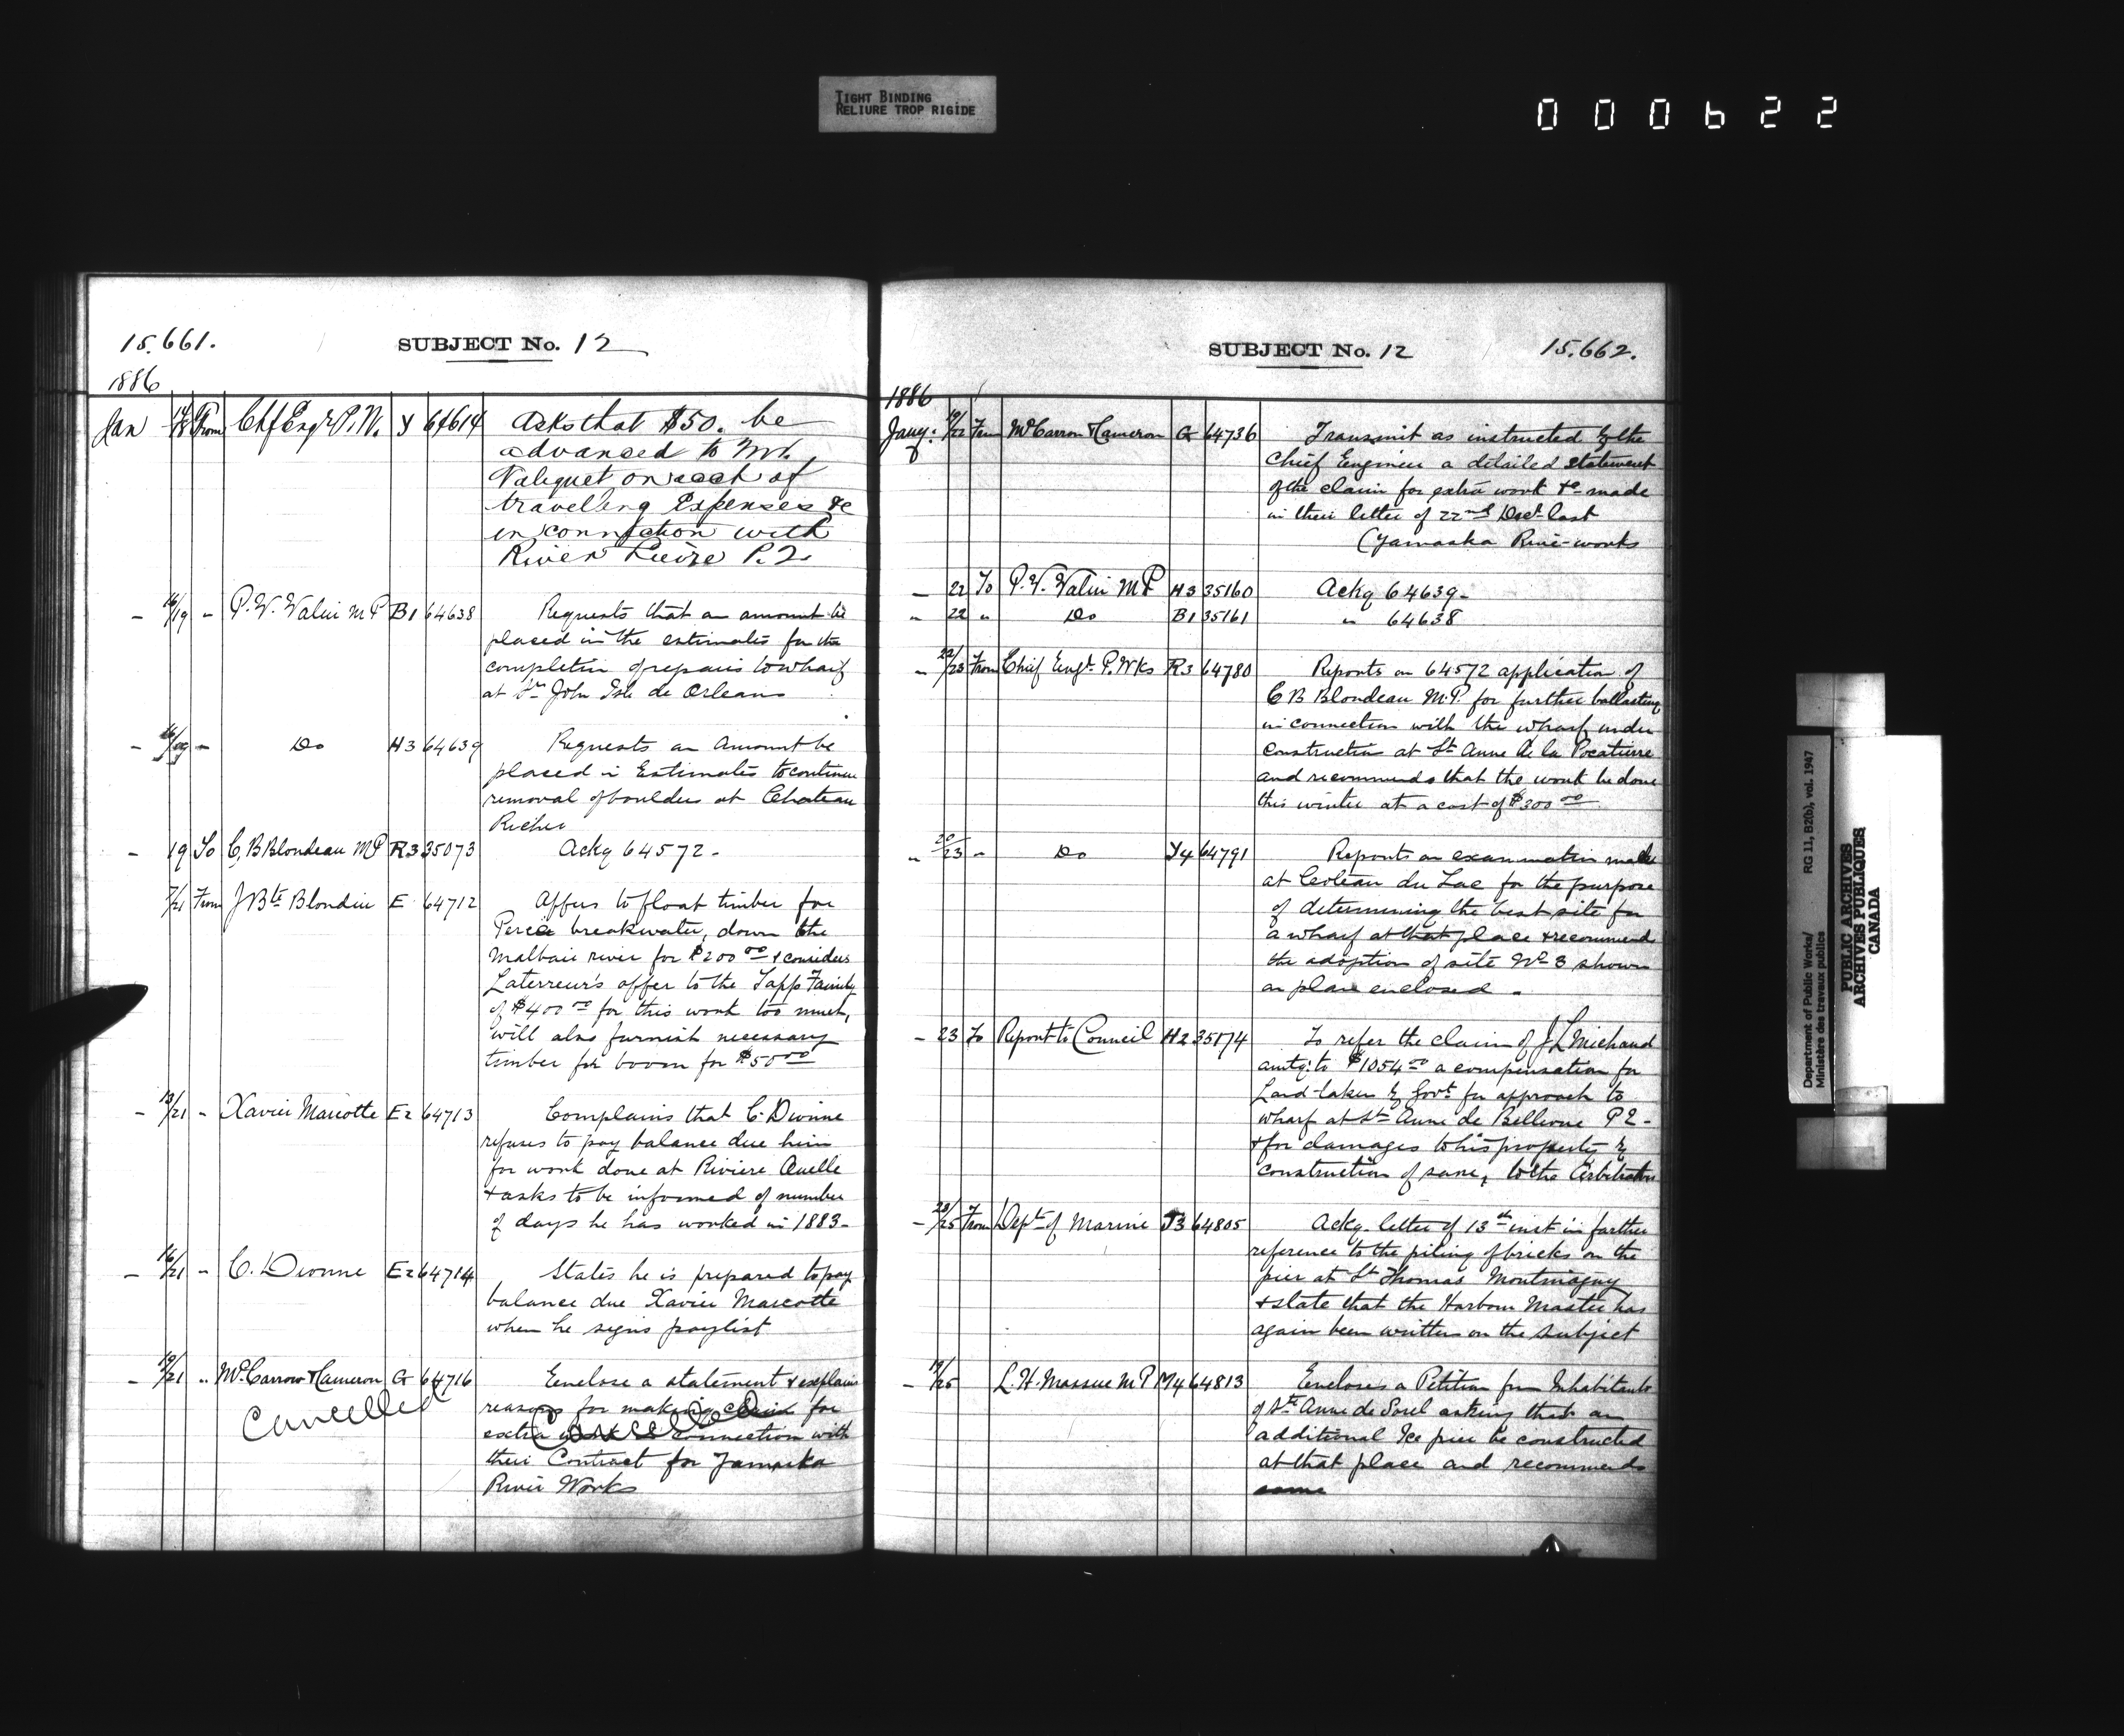 TIGHT BINDING
RELIURE TROP RIGIDE
000622
15.661.
SUBJECT No. 12
1886
Jan 18 From Chf Engr P.W. Y 64614 Asks that $50. be
advanced to Mr.
Valiquet on acct of
travelling Expenses &c
in connection with
River Lievre P.2.
- 16/19 " P.V. Valin M P B1 64638 Requests that an amount be
placed in the estimates for the
completion of repairs to wharf
at St John Isle de Orleans
- 16/19 " Do H3 64639 Requests an Amount be
placed in Estimates to continue
removal of boulders at Chateau
Richer
- 19 To C,B Blondeau MP R3 35073 Ackg 64572-
7/21 From J Bte Blondin E 64712 Offers to float timber for
Percée breakwater, down the
Malbaie river for $200.00 & considers
Laterreur's offer to the Tapp Family
of $400.00 for this work too much,
will also furnish necessary
timber for boom for $50.00
- 13/21 " Xavier Marcotte E2 64713 Complains that C. Dionne
refuses to pay balance due him
for work done at Riviere Ouelle
& asks to be informed of number
of days he has worked in 1883-
- 16/21 " C. Dionne E2 64714 States he is prepared to pay
balance due Xavier Marcotte
when he signs paylist
- 19/21 " McCarron & Cameron G 64716 Enclose a statement & explains
reasons for making claim for
Cancelled Cancelled
extra work in connection with
their Contract for Yamaska
River Works
SUBJECT No. 12 15.662.
1886
Jany. 19/22 From McCarron & Cameron G 64736 Transmit as instructed by the
Chief Engineer a detailed statement
of the claim for extra work &c made
in their letter of 22nd Decr last
(Yamaska River works
- 22 To P.V. Valin M P H3 35160 Ackg 64639-
" 22 " Do B1 35161 " 64638
" 22/23 From Chief Engr. P. Wks R3 64780 Reports on 64572 application of
C B Blondeau M.P. for further ballasting
in connection with the wharf under
construction at St Anne de la Pocatiere
and recommends that the work be done
this winter at a cost of $300.00
" 20/23 " Do Y4 64791 Reports on examination made
at Coteau du Lac for the purpose
of determining the best site for
a wharf at that place & recommends
the adoption of site No 3 shown
on plan enclosed.
- 23 To Report to Council H2 35174 To refer the claim of J L Michaud
amtg: to $1054.00 a compensation for
Land taken by Govt for approach to
wharf at St Anne de Bellevue P2-
& for damages to his property by
construction of same, to the Arbitrators
- 23/25 From Dept. of Marine T3 64805 Ackg. letter of 13th inst in further
reference to the piling of bricks on the
pier at St Thomas Montmagny
& state that the Harbour Master has
again been written on the subject
- 19/25 L.H. Massue M P M4 64813 Encloses a Petition from Inhabitants
of Ste Anne de Sorel asking that an
additional Ice pier be constructed
at that place and recommends
same
Department of Public Works/
Ministère des travaux publics
RG 11, B2(b), vol. 1947
PUBLIC ARCHIVES
ARCHIVES PUBLIQUES
CANADA